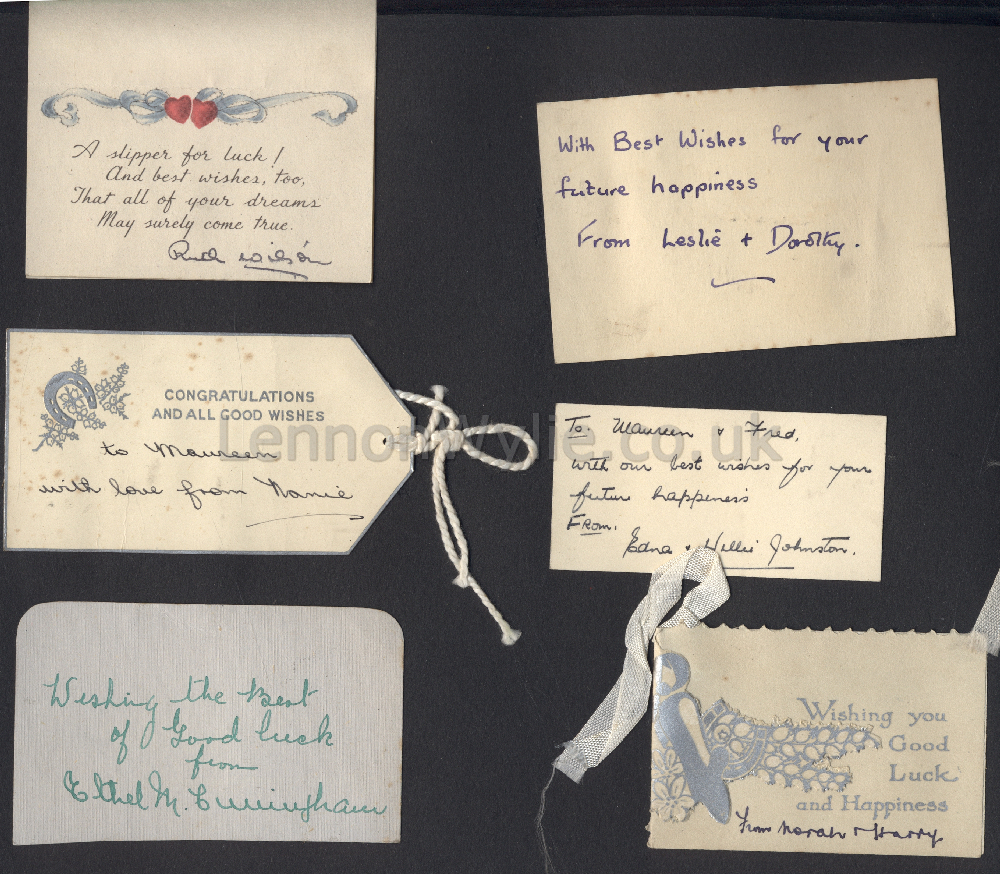 A slipper for luck!
And best wishes, too,
That all of your dreams
May surely come true.
Ruth Wilson
With Best Wishes for your
future happiness
From Leslie + Dorothy.
CONGRATULATIONS
AND ALL GOOD WISHES
to Maureen
with love from Nanie
LennonWylie.co.uk
To. Maureen & Fred,
with our best wishes for your
future happiness
From.
Edna & Willie Johnston.
Wishing the Best
of Good luck
from
Ethel M. Cunningham
Wishing you
Good
Luck
and Happiness
From Norah & Harry